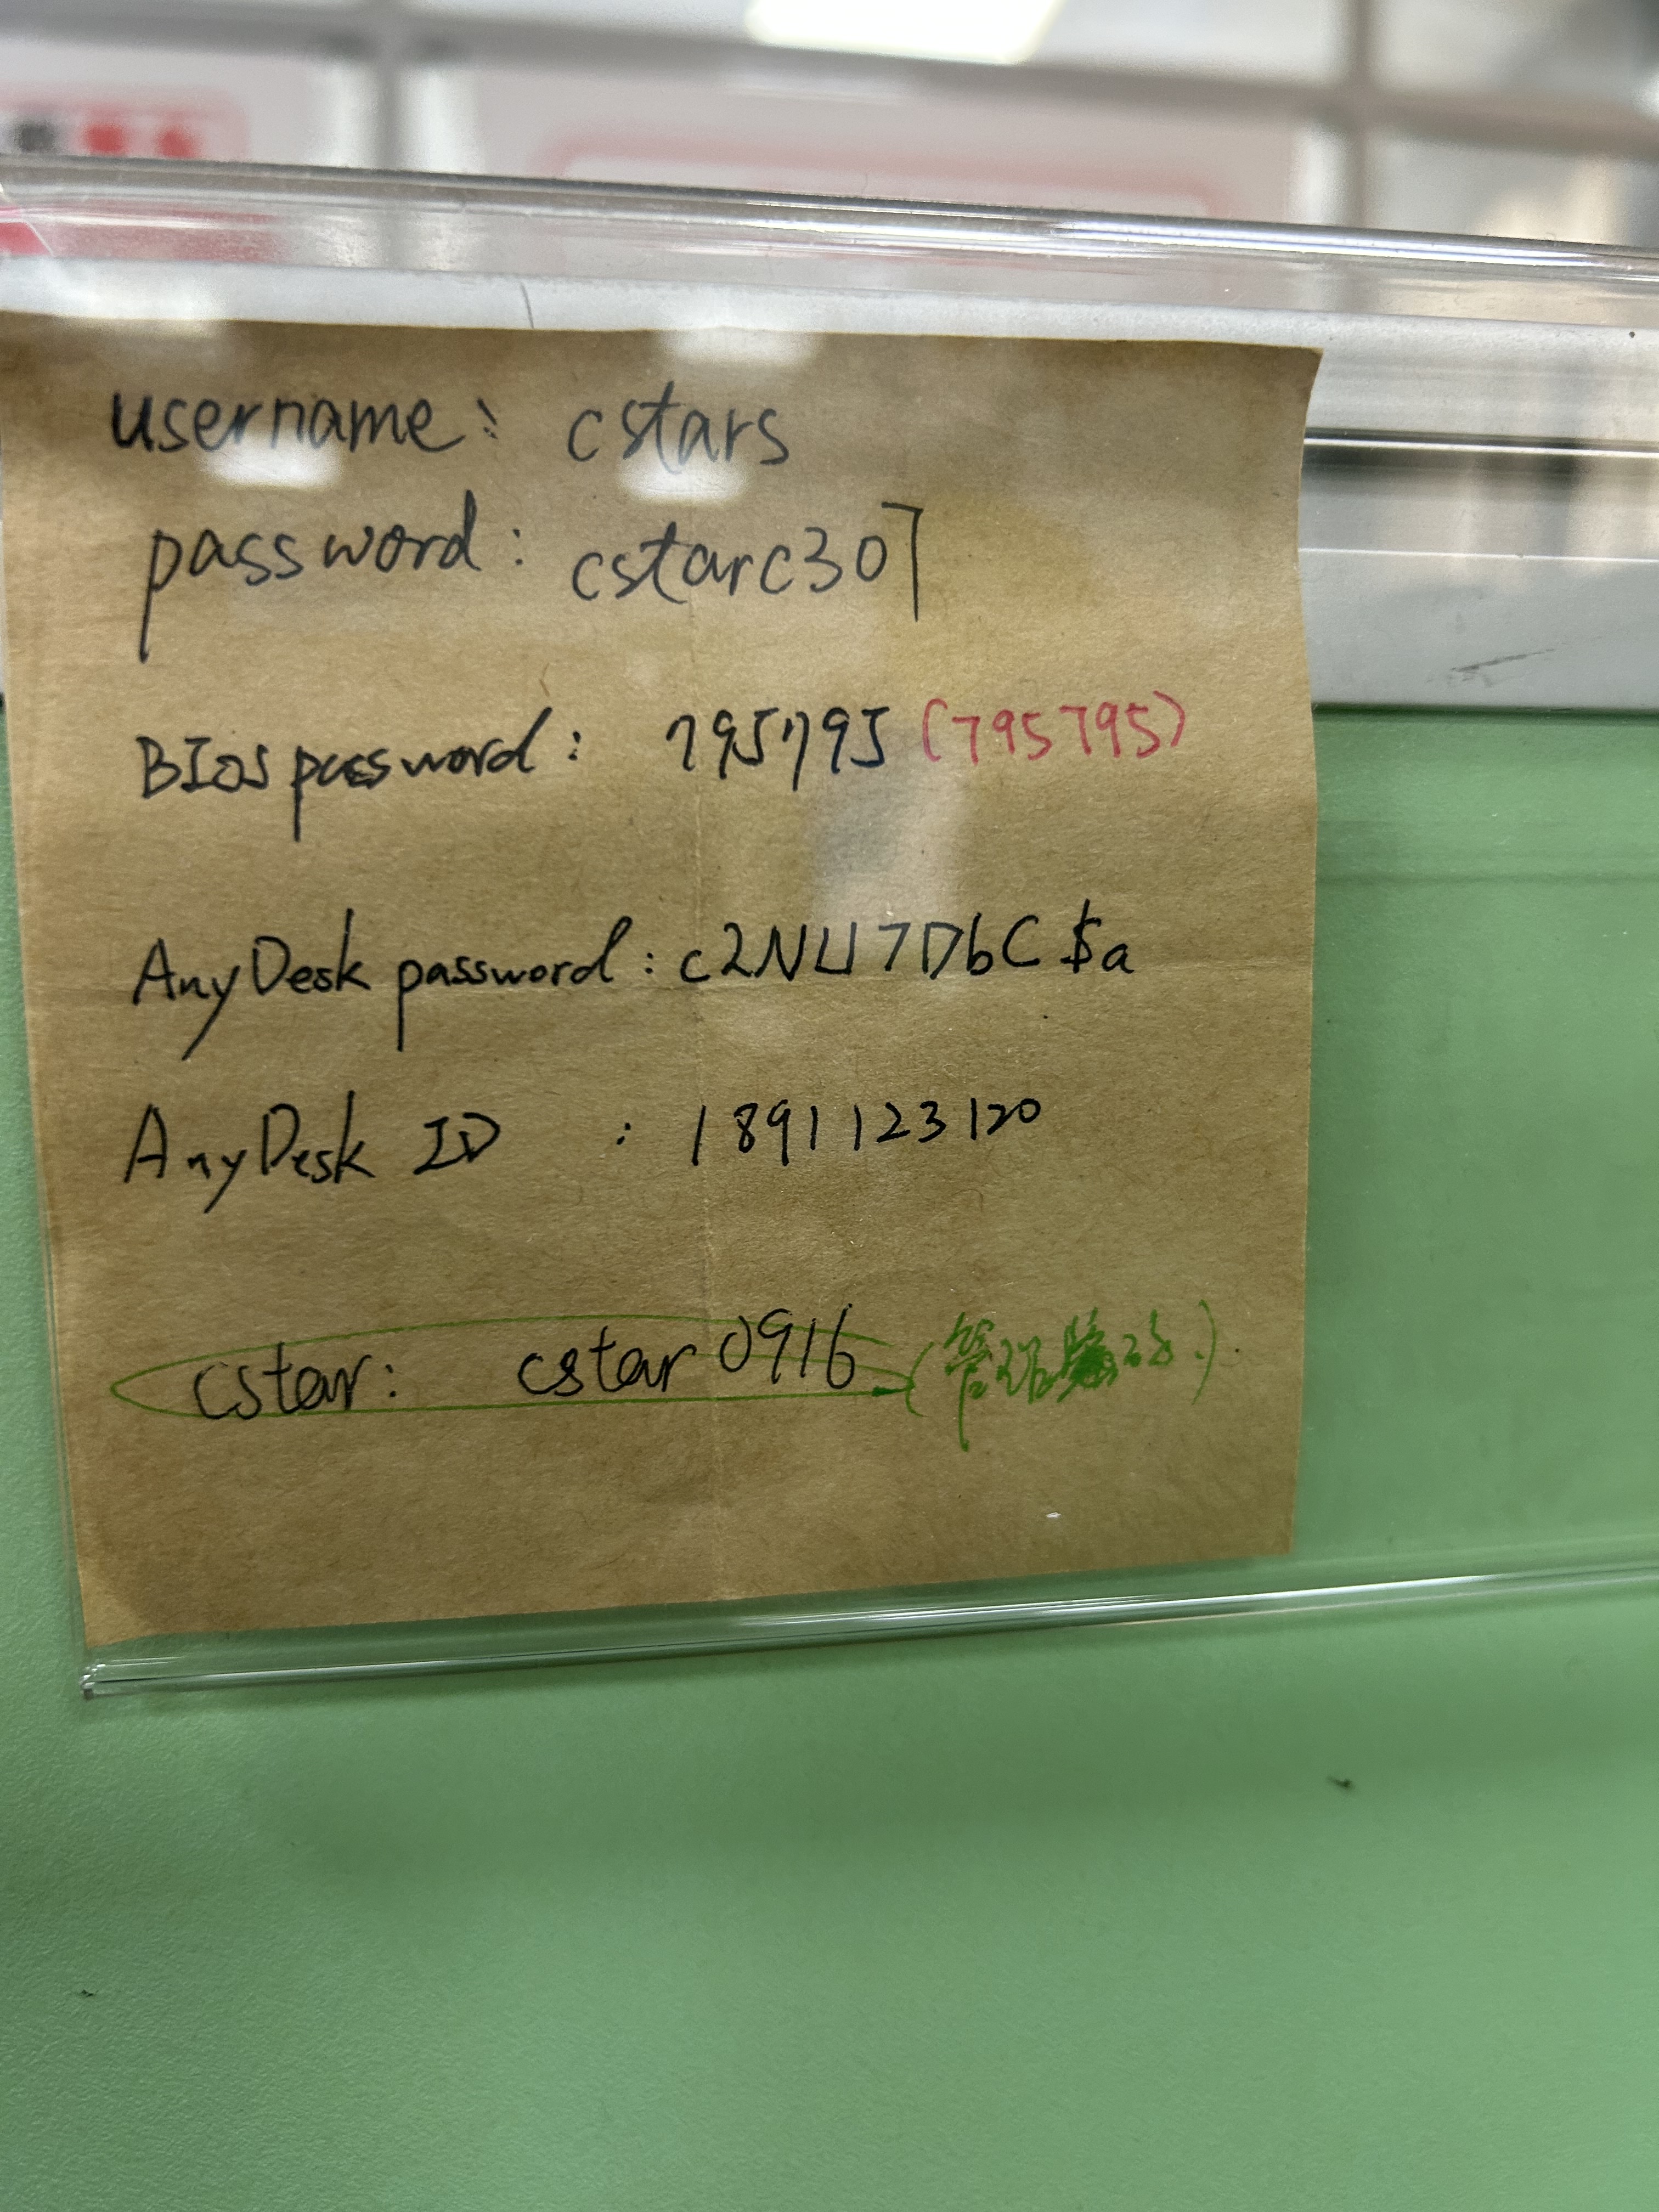 username: cstars
password: cstarc307
BIOS password: 795795 (795795)
AnyDesk password: c2NU7DbC$a
AnyDesk ID : 1891123120
cstar: cstar0916